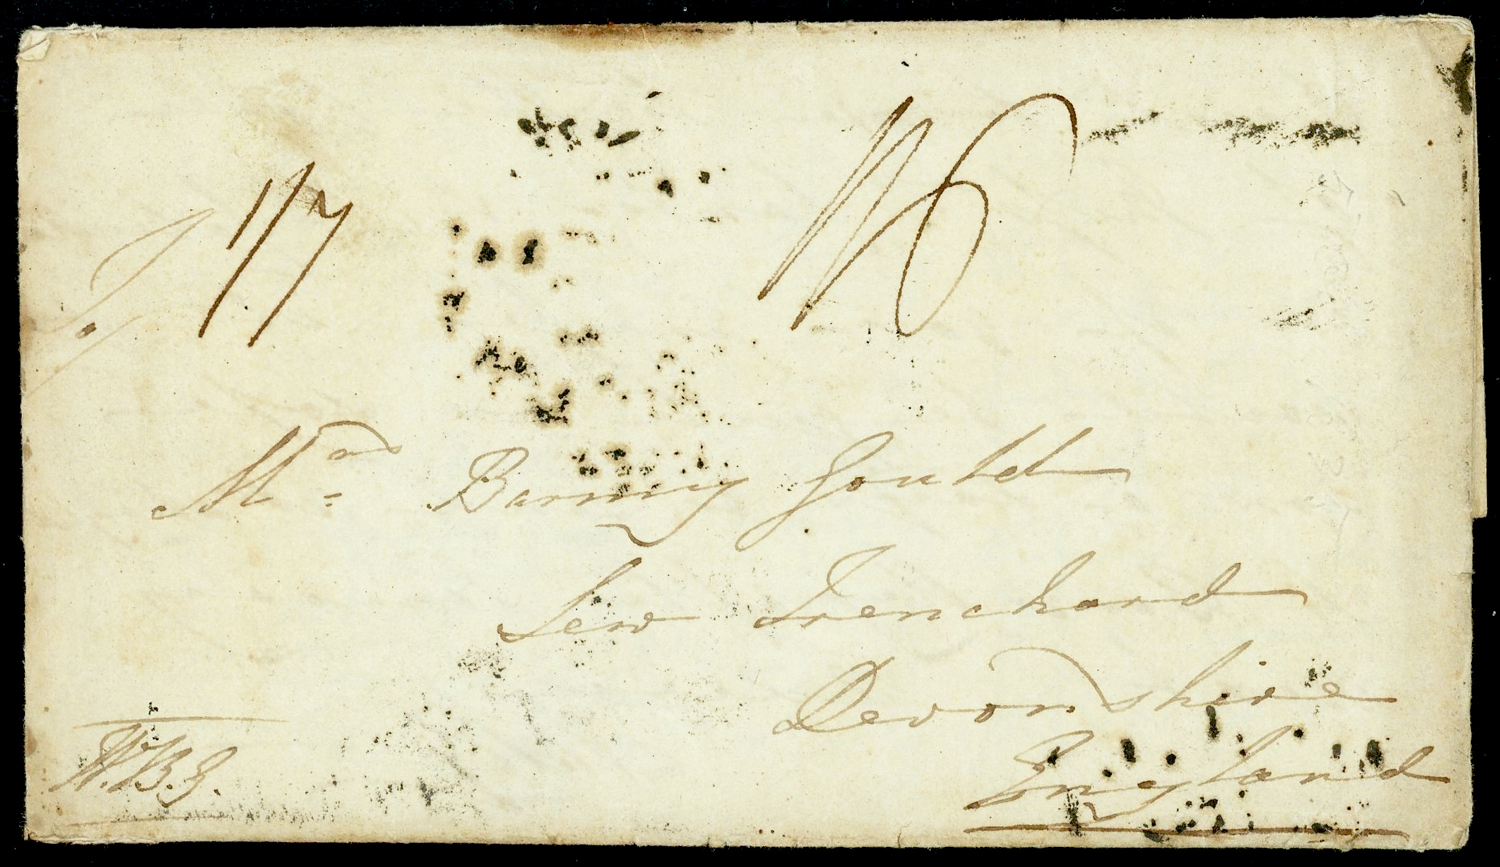 1/7 1/6
Mrs. Baring Gould
Lew Trenchard
Devonshire
England
W.B.G.